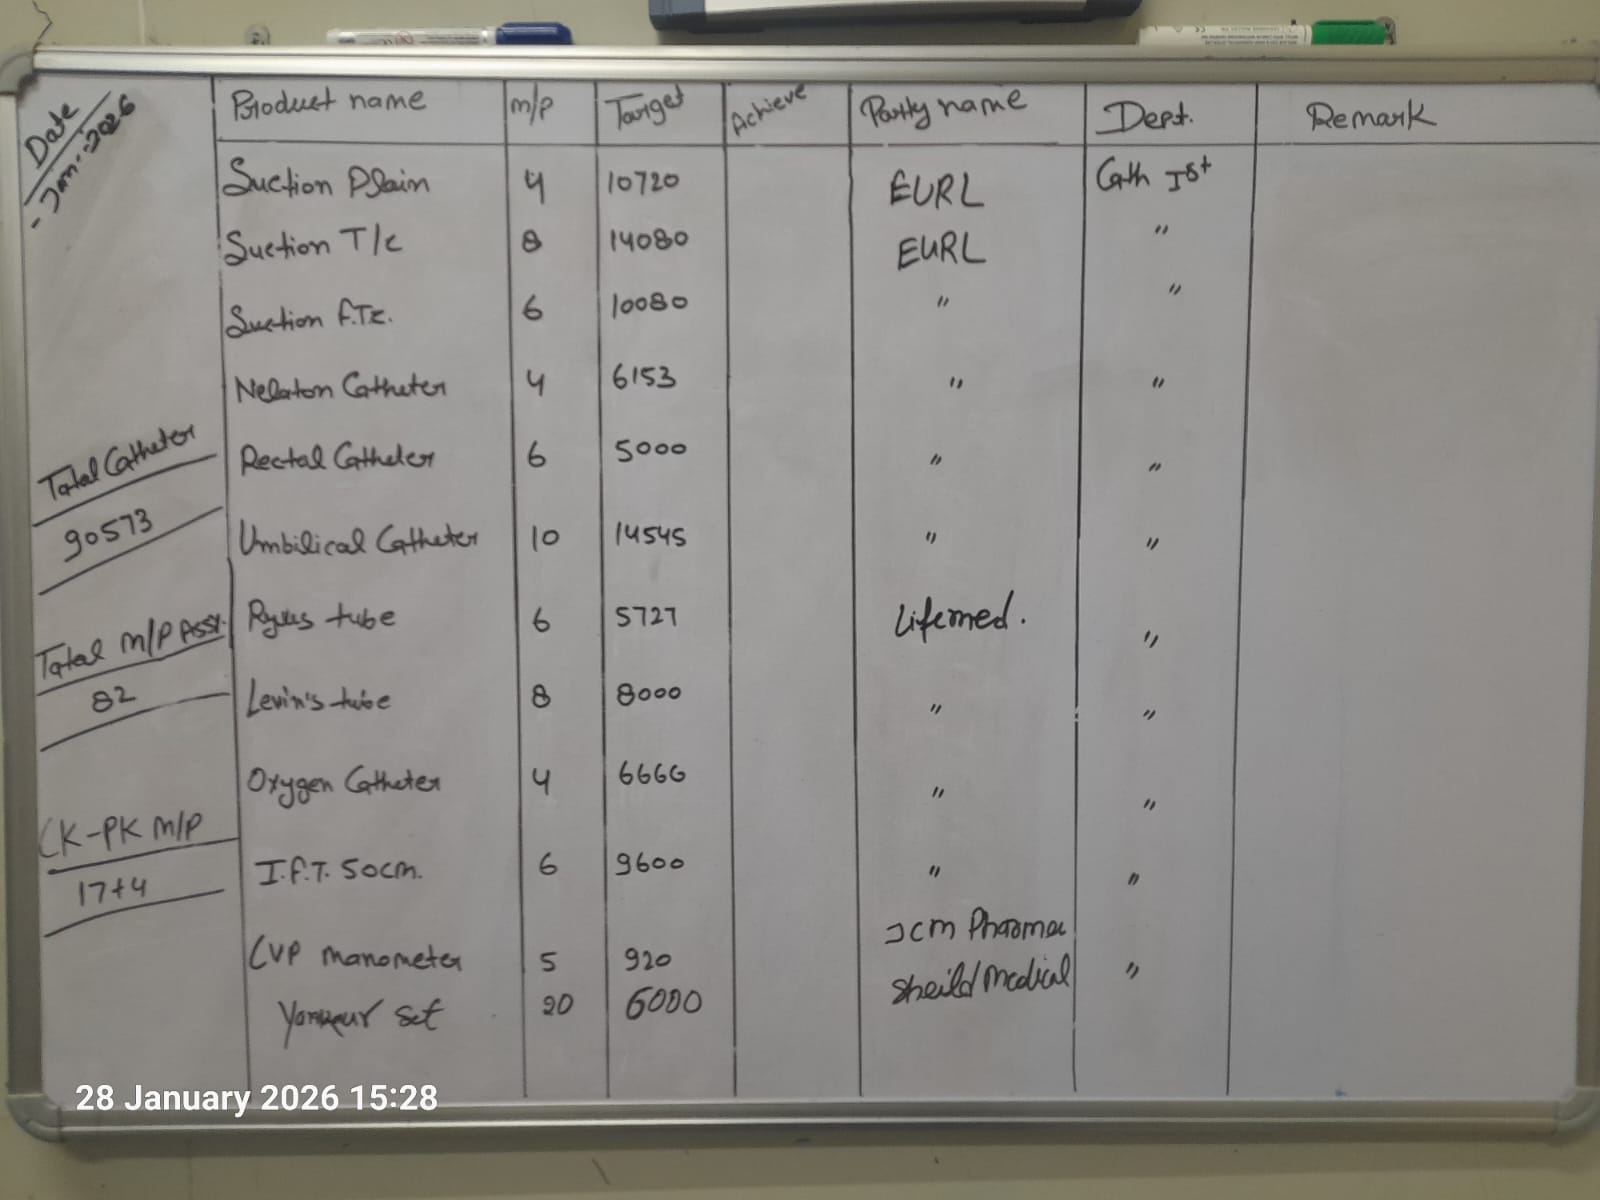 Date
- Jan - 2026
Product name m/p Target Achieve Party name Dept. Remark
Suction Plain 4 10720 EURL Cath Ist
Suction T/c 8 14080 EURL "
Suction f.T.c. 6 10080 " "
Nelaton Catheter 4 6153 " "
Rectal Catheter 6 5000 " "
Umbilical Catheter 10 14545 " "
Ryles tube 6 5727 Lifemed. "
Levin's tube 8 8000 " "
Oxygen Catheter 4 6666 " "
I.f.T. 50cm. 6 9600 " "
CVP manometer 5 920 Jcm Pharma "
Yankaur set 20 6000 Sheild Medical
Total Catheter
90573
Total m/p Assy.
82
CK-PK m/p
17+4
28 January 2026 15:28